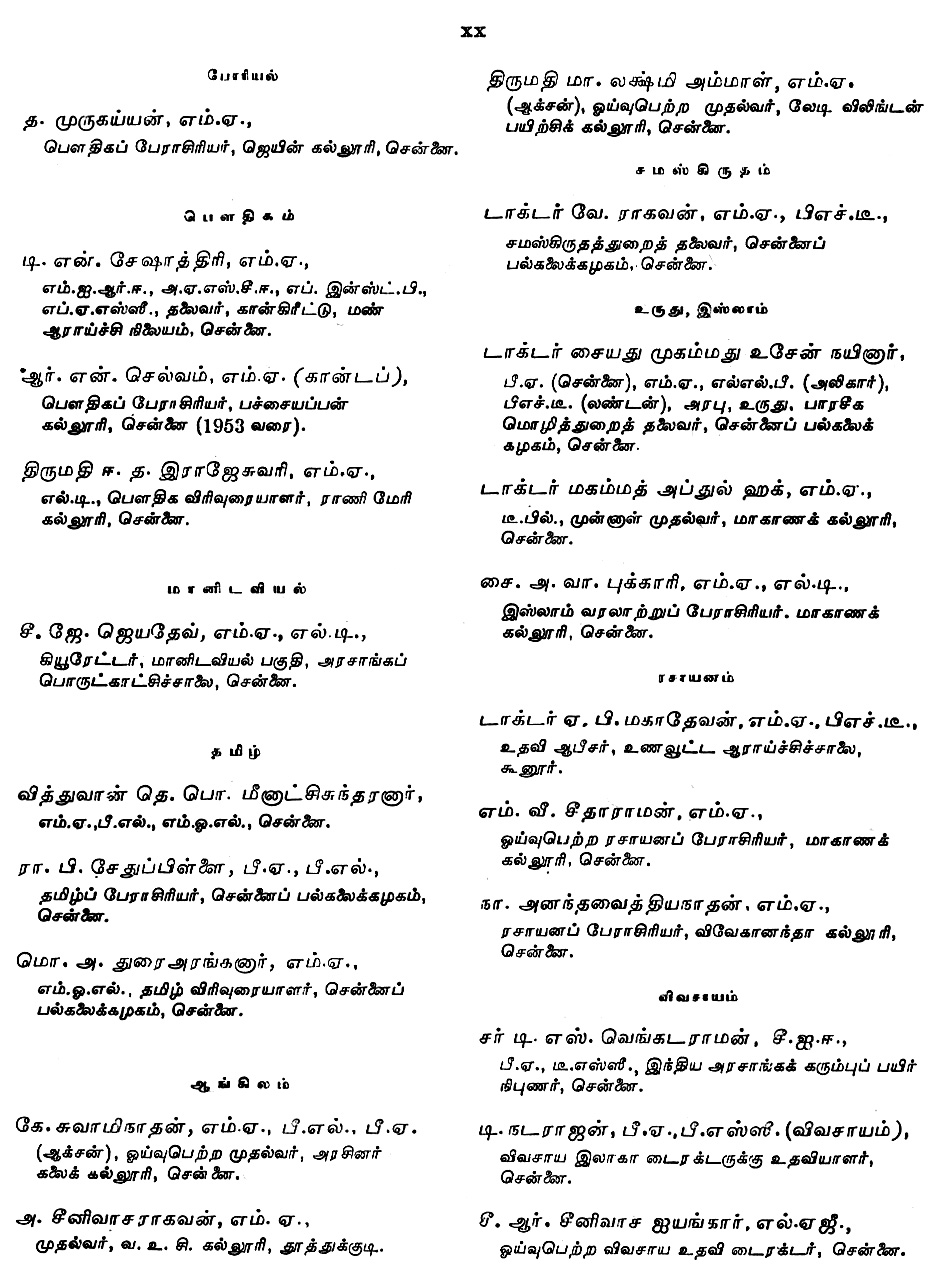 xx
போரியல்
த. முருகய்யன், எம்.ஏ.,
பௌதிகப் பேராசிரியர், ஜெயின் கல்லூரி, சென்னை.
பௌதிகம்
டி. என். சேஷாத்திரி, எம்.ஏ.,
எம்.ஐ.ஆர்.ஈ., அ.ஏ.எஸ்.சீ.ஈ., எப். இன்ஸ்ட்.பி.,
எப்.ஏ.எஸ்ஸீ., தலைவர், கான்கிரீட்டு, மண்
ஆராய்ச்சி நிலையம், சென்னை.
ஆர். என். செல்வம், எம்.ஏ. (கான்டப்),
பௌதிகப் பேராசிரியர், பச்சையப்பன்
கல்லூரி, சென்னை (1953 வரை).
திருமதி ஈ. த. இராஜேசுவரி, எம்.ஏ.,
எல்.டி., பௌதிக விரிவுரையாளர், ராணி மேரி
கல்லூரி, சென்னை.
மானிடவியல்
சீ. ஜே. ஜெயதேவ், எம்.ஏ., எல்.டி.,
கியூரேட்டர், மானிடவியல் பகுதி, அரசாங்கப்
பொருட்காட்சிச்சாலை, சென்னை.
தமிழ்
வித்துவான் தெ. பொ. மீனாட்சிசுந்தரனார்,
எம்.ஏ.,பீ.எல்., எம்.ஓ.எல்., சென்னை.
ரா. பி. சேதுப்பிள்ளை, பீ.ஏ., பீ.எல்.,
தமிழ்ப் பேராசிரியர், சென்னைப் பல்கலைக்கழகம்,
சென்னை.
மொ. அ. துரைஅரங்கனார், எம்.ஏ.,
எம்.ஓ.எல்., தமிழ் விரிவுரையாளர், சென்னைப்
பல்கலைக்கழகம், சென்னை.
ஆங்கிலம்
கே. சுவாமிநாதன், எம்.ஏ., பீ.எல்., பீ.ஏ.
(ஆக்சன்), ஓய்வுபெற்ற முதல்வர், அரசினர்
கலைக் கல்லூரி, சென்னை.
அ. சீனிவாசராகவன், எம். ஏ.,
முதல்வர், வ. உ. சி. கல்லூரி, தூத்துக்குடி.
திருமதி மா. லக்ஷ்மி அம்மாள், எம்.ஏ.
(ஆக்சன்), ஓய்வுபெற்ற முதல்வர், லேடி விலிங்டன்
பயிற்சிக் கல்லூரி, சென்னை.
சமஸ்கிருதம்
டாக்டர் வே. ராகவன், எம்.ஏ., பிஎச்.டீ.,
சமஸ்கிருதத்துறைத் தலைவர், சென்னைப்
பல்கலைக்கழகம், சென்னை.
உருது, இஸ்லாம்
டாக்டர் சையது முகம்மது உசேன் நயினார்,
பீ.ஏ. (சென்னை), எம்.ஏ., எல்எல்.பீ. (அலிகார்),
பிஎச்.டீ. (லண்டன்), அரபு, உருது, பாரசீக
மொழித்துறைத் தலைவர், சென்னைப் பல்கலைக்
கழகம், சென்னை.
டாக்டர் மகம்மத் அப்துல் ஹக், எம்.ஏ.,
டீ.பில்., முன்னாள் முதல்வர், மாகாணக் கல்லூரி,
சென்னை.
சை. அ. வா. புக்காரி, எம்.ஏ., எல்.டி.,
இஸ்லாம் வரலாற்றுப் பேராசிரியர். மாகாணக்
கல்லூரி, சென்னை.
ரசாயனம்
டாக்டர் ஏ. பி. மகாதேவன், எம்.ஏ., பிஎச்.டீ.,
உதவி ஆபீசர், உணவூட்ட ஆராய்ச்சிச்சாலை,
கூனூர்.
எம். வீ. சீதாராமன், எம்.ஏ.,
ஓய்வுபெற்ற ரசாயனப் பேராசிரியர், மாகாணக்
கல்லூரி, சென்னை.
நா. அனந்தவைத்தியநாதன், எம்.ஏ.,
ரசாயனப் பேராசிரியர், விவேகானந்தா கல்லூரி,
சென்னை.
விவசாயம்
சர் டி. எஸ். வெங்கடராமன், சீ.ஐ.ஈ.,
பீ.ஏ., டீ.எஸ்ஸீ., இந்திய அரசாங்கக் கரும்புப் பயிர்
நிபுணர், சென்னை.
டி. நடராஜன், பீ.ஏ.,பீ.எஸ்ஸீ. (விவசாயம்),
விவசாய இலாகா டைரக்டருக்கு உதவியாளர்,
சென்னை.
சீ. ஆர். சீனிவாச ஐயங்கார், எல்.ஏஜீ.,
ஓய்வுபெற்ற விவசாய உதவி டைரக்டர், சென்னை.